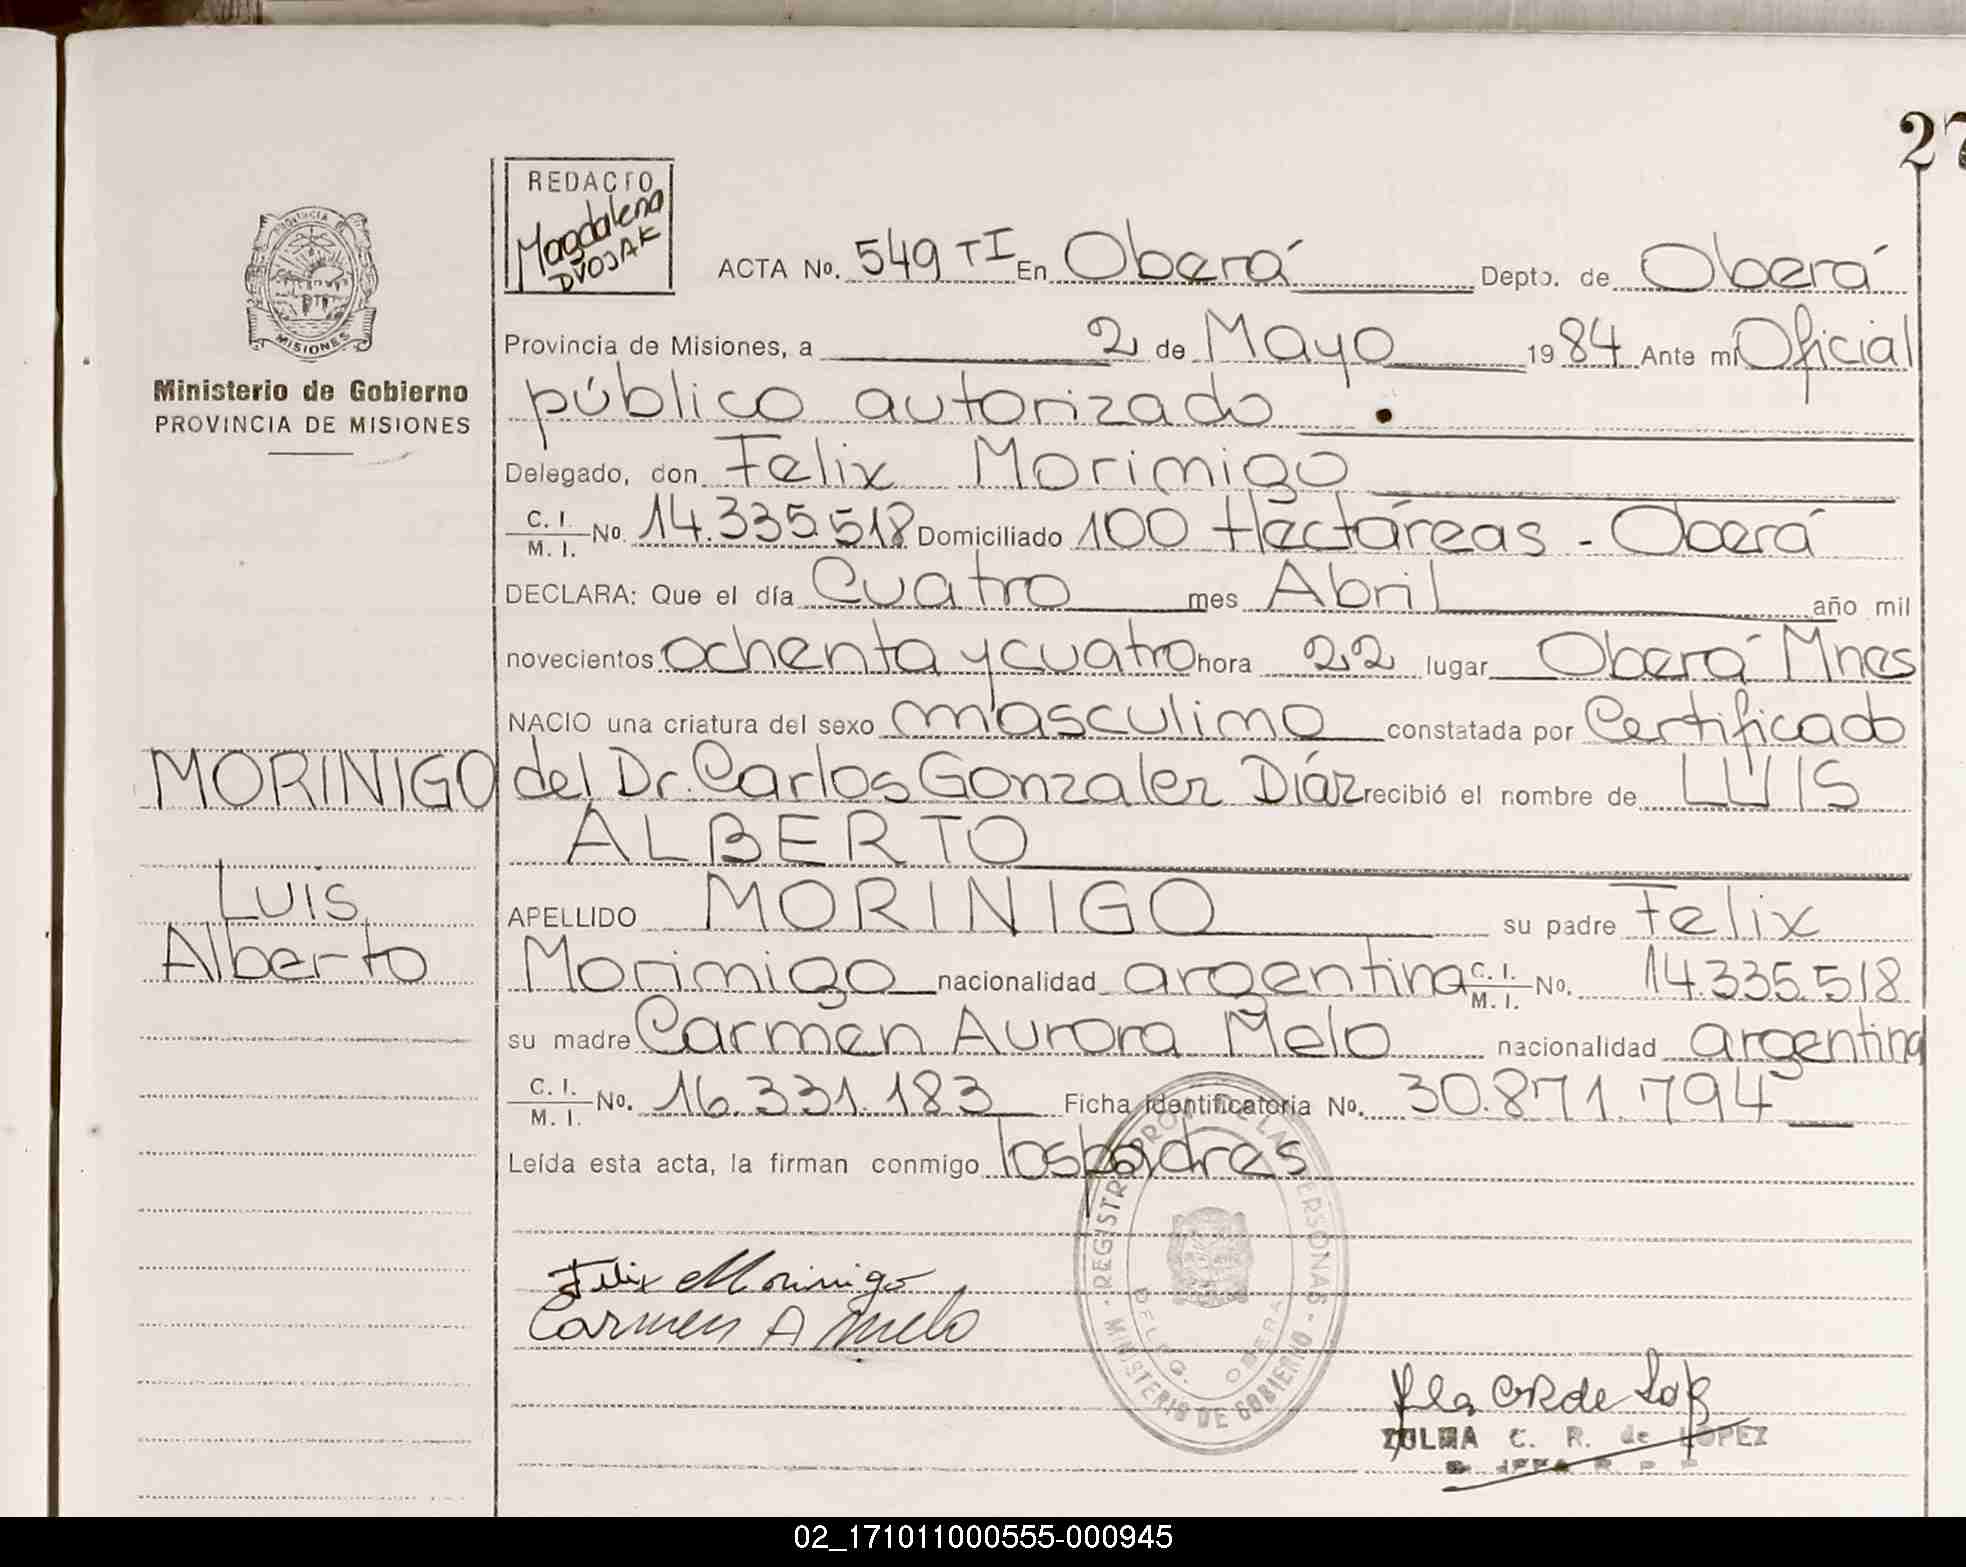 27
REDACTO
Magdalena
DVOJAK
PROVINCIA
MISIONES
Ministerio de Gobierno
PROVINCIA DE MISIONES
ACTA No. 549 TI En Oberá Depto. de Oberá
Provincia de Misiones, a 2 de Mayo 1984 Ante mi Oficial
público autorizado
Delegado, don Felix Morinigo
C. I. M. I. No. 14.335.518 Domiciliado 100 Hectáreas - Oberá
DECLARA: Que el día Cuatro mes Abril año mil
novecientos ochenta y cuatro hora 22 lugar Oberá Mnes
NACIO una criatura del sexo masculino constatada por Certificado
MORINIGO del Dr. Carlos Gonzalez Diáz recibió el nombre de LUIS
ALBERTO
Luis
APELLIDO MORINIGO su padre Felix
Alberto
Morinigo nacionalidad argentina C. I. M. I. No. 14.335.518
su madre Carmen Aurora Melo nacionalidad argentina
C. I. M. I. No. 16.331.183 Ficha identificatoria No. 30.871.794
Leída esta acta, la firman conmigo los padres
Felix Morinigo
Carmen A Melo
REGISTRO PROV. DE LAS PERSONAS
DELEG. OBERA
MINISTERIO DE GOBIERNO
ZULMA C. R. de LOPEZ
02_171011000555-000945